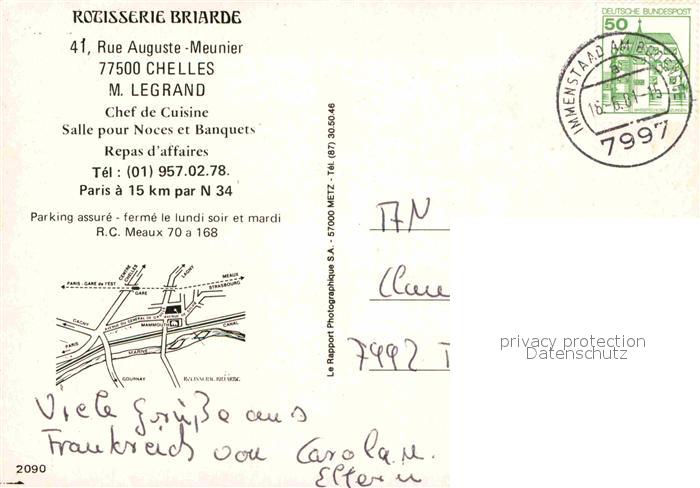 ROTISSERIE BRIARDE
41, Rue Auguste-Meunier
77500 CHELLES
M. LEGRAND
Chef de Cuisine
Salle pour Noces et Banquets
Repas d'affaires
Tél : (01) 957.02.78.
Paris à 15 km par N 34
Parking assuré - fermé le lundi soir et mardi
R.C. Meaux 70 a 168
CENTRE CHELLES
LAGNY
PARIS - GARE de l'EST
MEAUX
STRASBOURG
GARE
AVENUE DU GENERAL DE
GAGNY
MAMMOUTH
CANAL
PARIS
MARNE
GOURNAY
ROTISSERIE BRIARDE
Viele Grüße aus
Frankreich von Carola u.
Eltern
2090
Le Rapport Photographique S.A. - 57000 METZ - Tél. (87) 30.50.46
DEUTSCHE BUNDESPOST
50
IMMENSTAAD AM BODENSEE
7997
7992
privacy protection
Datenschutz